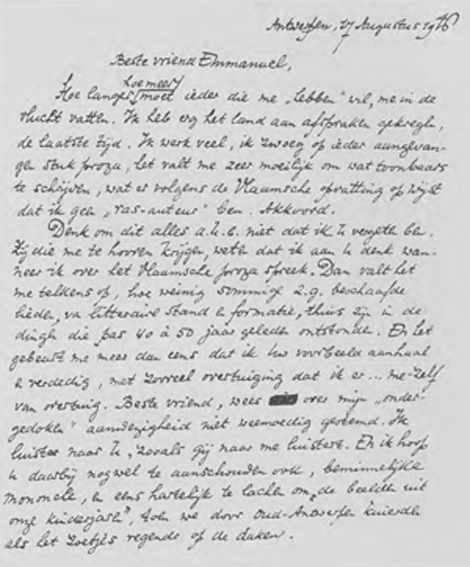 Antwerpen, 27 Augustus 1946
Beste vriend Emmanuel,
hoe meer
Hoe langer moet ieder die me „hebben" wil, me in de
vlucht vatten. Ik heb erg het land aan afspraken gekregen,
de laatste tijd. Ik werk veel, ik zwoeg op ieder aangevan-
gen stuk proza, het valt me zeer moeilijk om wat toonbaars
te schrijven, wat er volgens de Vlaamsche opvatting op wijst
dat ik geen „ras-auteur" ben. Akkoord.
Denk om dit alles a.u.b. niet dat ik U vergeten ben.
Zij die me te hooren krijgen, weten dat ik aan U denk wan-
neer ik over het Vlaamsche proza spreek. Dan valt het
me telkens op, hoe weinig sommige z.g. beschaafde
lieden, van litteraire stand & formatie, thuis zijn in de
dingen die pas 40 à 50 jaar geleden ontstonden. En het
gebeurt me meer dan eens dat ik Uw voorbeeld aanhaal
& verdedig, met zooveel overtuiging dat ik er ... me-zelf
van overtuig. Beste vriend, wees over mijn „onder-
gedoken" aanwezigheid niet weemoedig gestemd. Ik
luister naar U, zooals Gij naar me luistert. En ik hoop
U daarbij nog wel te aanschouwen ook, beminnelijke
Mononcle, en eens hartelijk te lachen om „de beelden uit
onze kinderjaren", toen we door Oud-Antwerpen kuierden
als het zoetjes regende op de daken.